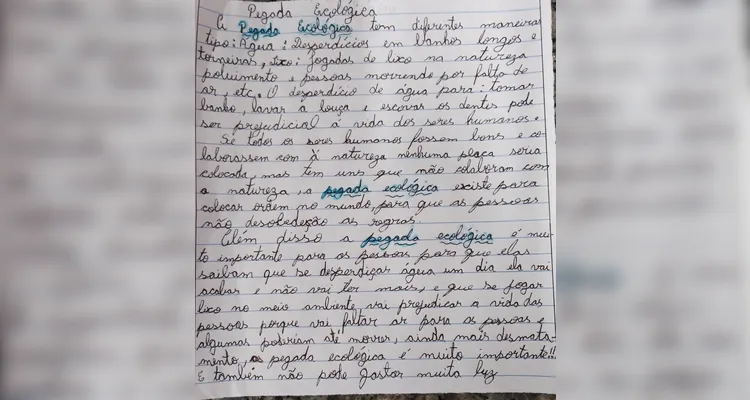 Pegada Ecológica
A Pegada Ecológica tem diferentes maneiras
tipo: Água: Desperdícios em banhos longos e
torneiras, lixo: Jogadas de lixo na natureza
poluimento e pessoas morrendo por falta de
ar, etc. O desperdício de água para: tomar
banho, lavar a louça e escovar os dentes pode
ser prejudicial á vida dos seres humanos.
Sé todos os seres humanos fossem bons e co-
laborassem com à natureza nenhuma placa seria
colocada, mas tem uns que não colaboram com
a natureza, a pegada ecológica existe para
colocar ordem no mundo, para que as pessoas
não desobedeção as regras.
Além disso a pegada ecológica é mui-
to importante para as pessoas para que elas
saibam que se desperdiçar água um dia ela vai
acabar e não vai ter mais, e que se jogar
lixo no meio ambiente vai prejudicar a vida das
pessoas porque vai faltar ar para as pessoas e
algumas poderiam até morrer, ainda mais desmata-
mento, a pegada ecológica é muito importante!!
E também não pode gastar muita luz